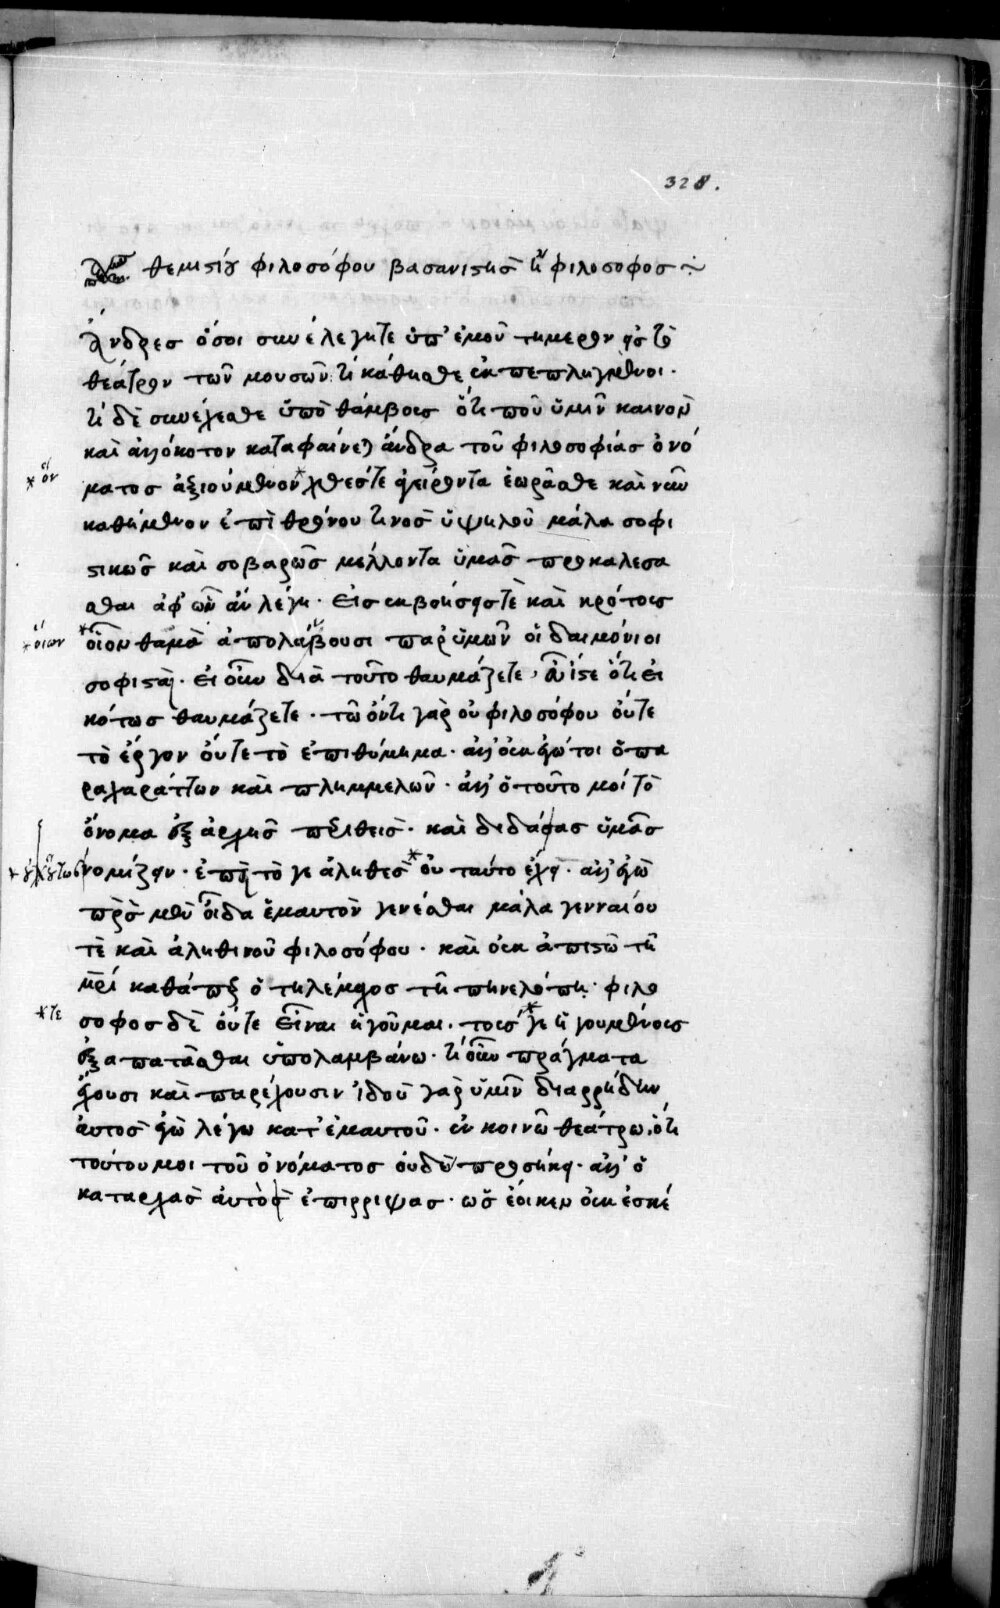 328.
θεμιστίου φιλοσόφου βασανιστὴς ἢ φιλόσοφος
Ἄνδρες ὅσοι συνελέγητε ὑπ' ἐμοῦ τήμερον εἰς τὸ
θέατρον τῶν μουσῶν τί κάθησθε ἐκπεπληγμένοι.
τί δὲ συνέχεσθε ὑπὸ θάμβους ὅτι που ὑμῖν καινὸν
καὶ ἀλλόκοτον καταφαίνεται ἄνδρα τοῦ φιλοσοφίας ὀνό
ματος ἀξιούμενον * χθὲς τε ἐγείροντα ἑωρᾶσθε καὶ νῦν
* ὃν
καθήμενον ἐπὶ θρόνου τινὸς ὑψηλοῦ μάλα σοφι
στικῶς καὶ σοβαρῶς μέλλοντα ὑμᾶς προκαλέσα
σθαι ἀφ' ὧν ἂν λέγη. εἰς ἐκβοήσεις τὲ καὶ κρότους
* οἷον θαμὰ ἀπολαύουσι παρ' ὑμῶν οἱ δαιμόνιοι
* οἵων
σοφισταί. εἰ οὖν διὰ τοῦτο θαυμάζετε, εὖ ἴστε ὅτι εἰ
κότως θαυμάζετε. τῶ ὄντι γὰρ οὐ φιλοσόφου οὔτε
τὸ ἔργον οὔτε τὸ ἐπιθύμημα. ἀλλ' οὐκ ἐγώ τοι ὁ πα
ραχαράττων καὶ πλημμελῶν. ἀλλ' ὁ τοῦτο μοι τὸ
ὄνομα ἐξ ἀρχῆς περιθείς. καὶ διδάξας ὑμᾶς
νομίζειν. ἐπεὶ τό γε ἀληθὲς * οὐ ταύτο ἔχει. ἀλλ' ἐγὼ
* οὐχ οὕτως
πρὸς μὲν οἶδα ἐμαυτὸν γενέσθαι μάλα γενναίου
τὲ καὶ ἀληθινοῦ φιλοσόφου. καὶ οὐκ ἀπιστῶ τῆ
μητρὶ καθάπερ ὁ τηλέμαχος τῆ πηνελόπη. φιλό
σοφος δὲ οὔτε εἶναι ἡγοῦμαι. τούς * γε ἡγουμένους
* τε
ἐξαπατᾶσθαι ὑπολαμβάνω. τί οὖν πράγματα
ἔχουσι καὶ παρέχουσιν ἰδοὺ γὰρ ὑμῖν διαρρήδην
αὐτὸς ἐγὼ λέγω κατ' ἐμαυτοῦ. ἐν κοινῶ θεάτρω, ὅτι
τούτου μοι τοῦ ὀνόματος οὐδὲν προσήκει. ἀλλ' ὁ
καταρχὰς αὐτὸς ἐπιρρίψας. ὡς ἔοικεν οὐκ ἐσκέ